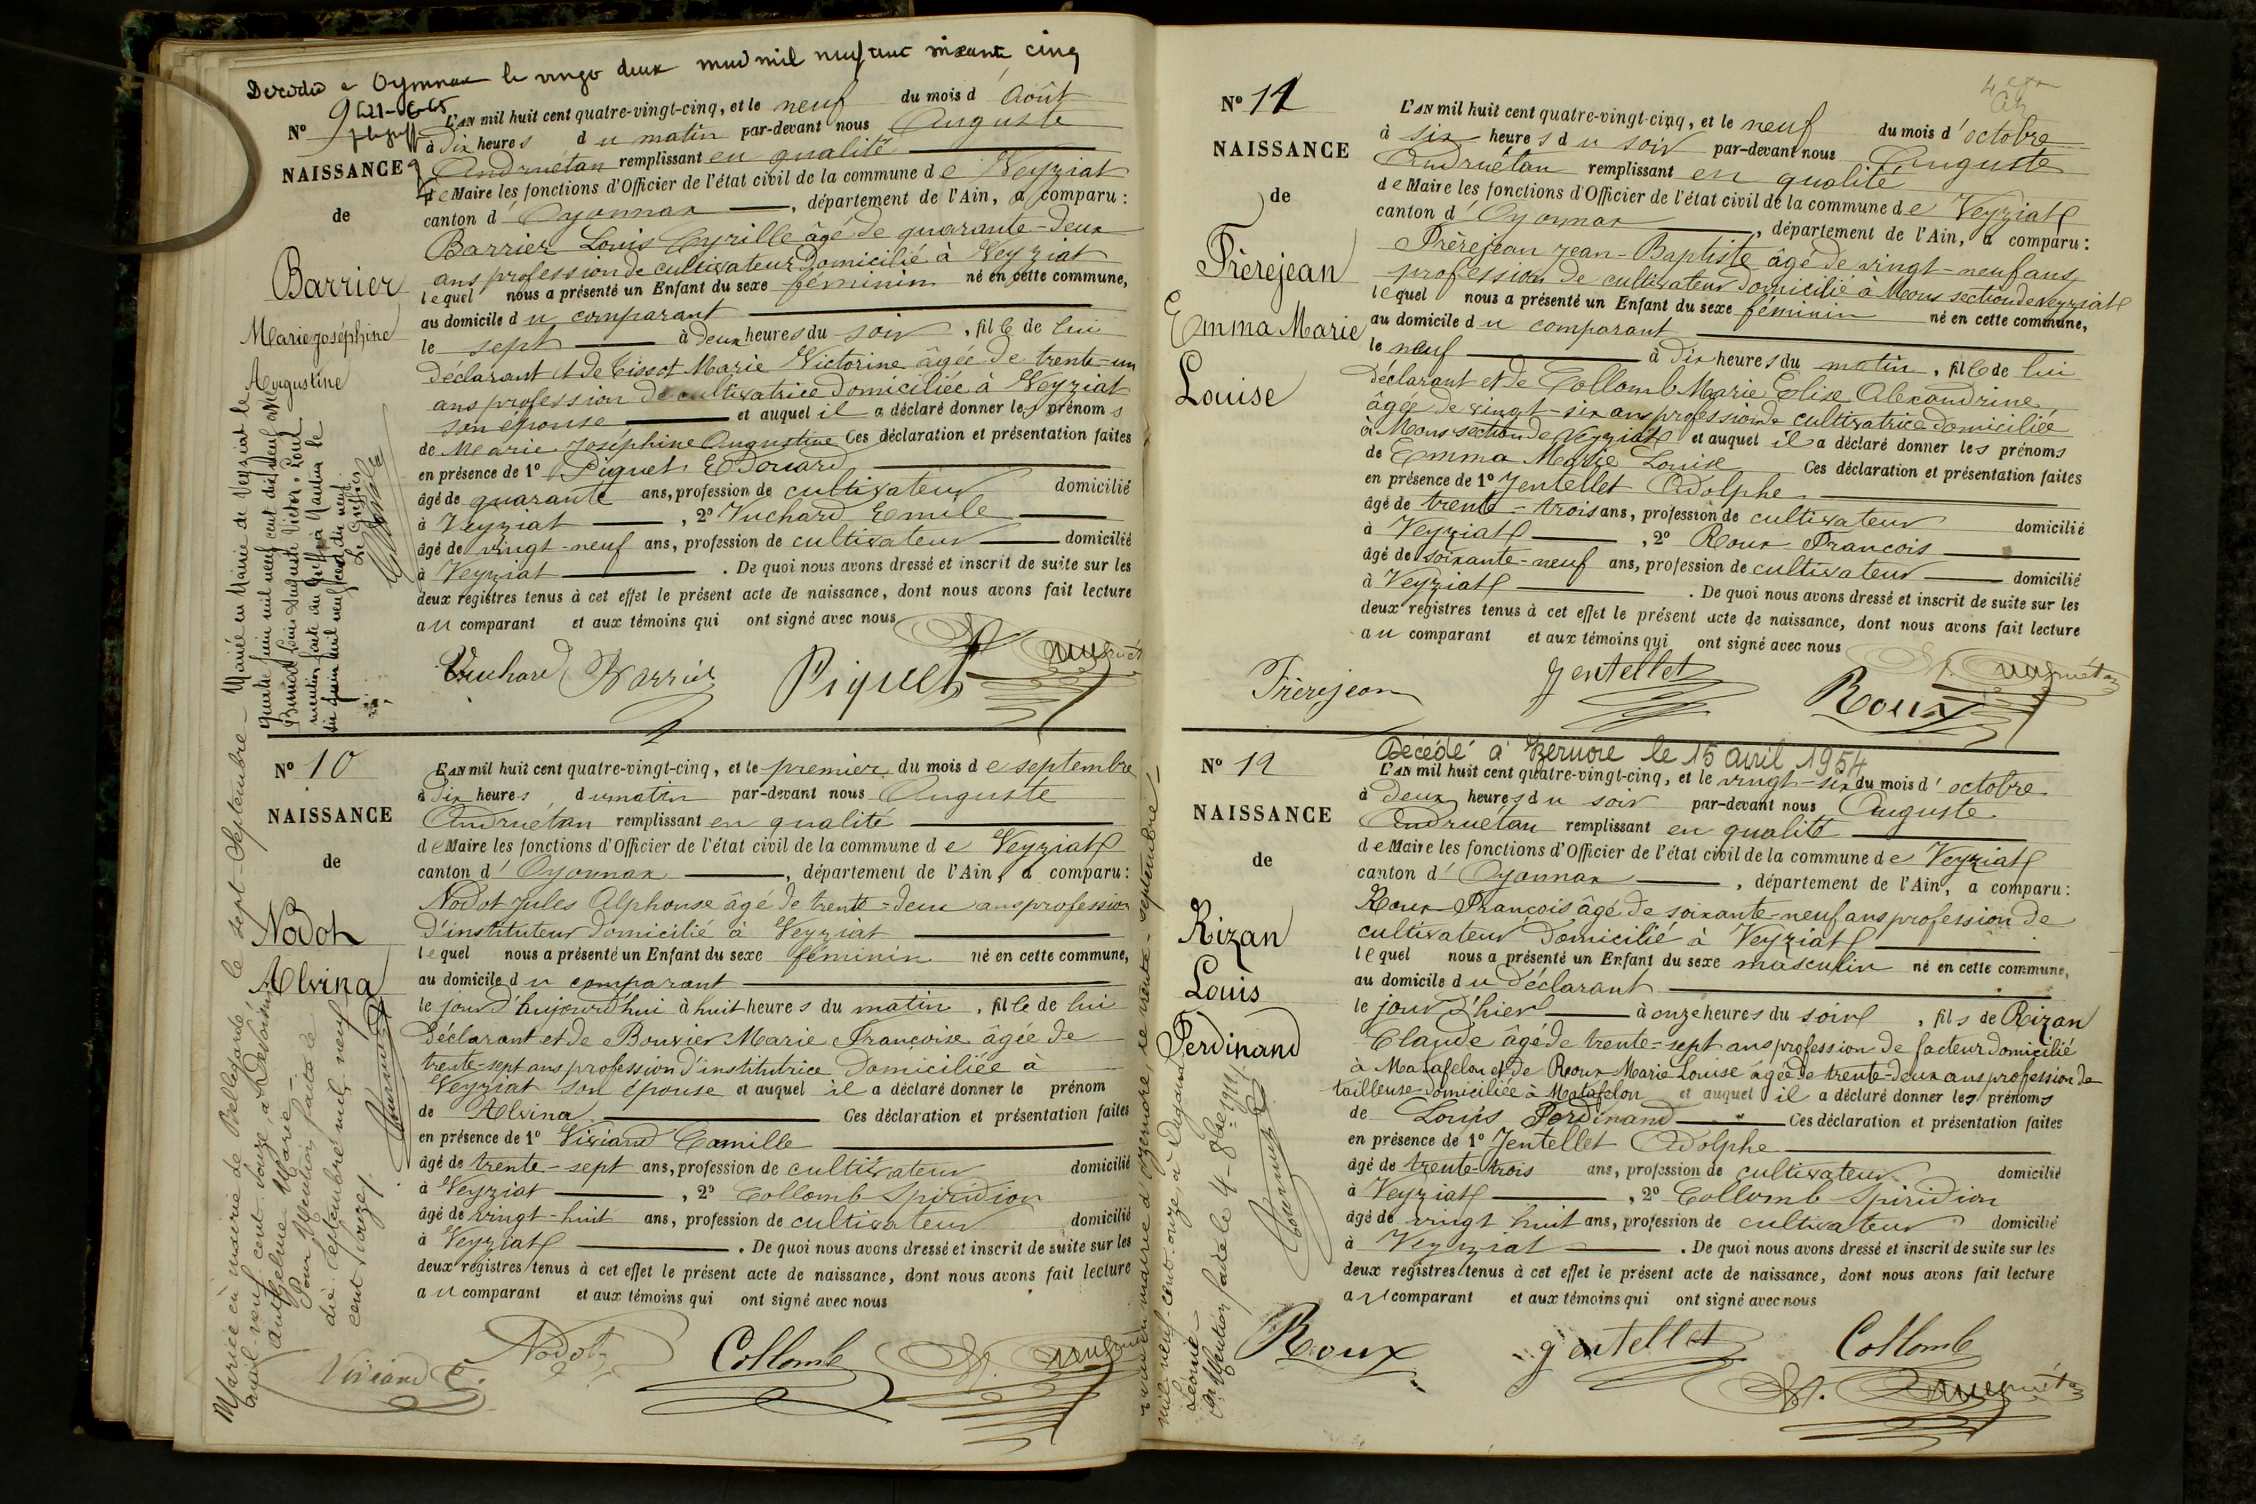 Décédée à Oyonnax le vingt deux mil neuf cent soixante cinq
N° 9
NAISSANCE
de
Barrier
Marie Joséphine
Augustine
L'AN mil huit cent quatre-vingt-cinq, et le neuf du mois d'Août
à dix heures du matin par-devant nous Auguste
Andruétan remplissant en qualité
de Maire les fonctions d'Officier de l'état civil de la commune de Veyziat
canton d'Oyonnax, département de l'Ain, a comparu :
Barrier Louis Cyrille âgé de quarante-deux
ans profession de cultivateur domicilié à Veyziat
lequel nous a présenté un Enfant du sexe féminin né en cette commune,
au domicile du comparant
le sept à deux heures du soir, fille de lui
déclarant et de Tissot Marie Victorine âgée de trente-un
ans profession de cultivatrice domiciliée à Veyziat
son épouse et auquel il a déclaré donner les prénoms
de Marie Joséphine Augustine Ces déclaration et présentation faites
en présence de 1° Piquet Edouard
âgé de quarante ans, profession de cultivateur domicilié
à Veyziat, 2° Vuchard Emile
âgé de vingt-neuf ans, profession de cultivateur domicilié
à Veyziat. De quoi nous avons dressé et inscrit de suite sur les
deux registres tenus à cet effet le présent acte de naissance, dont nous avons fait lecture
au comparant et aux témoins qui ont signé avec nous
Vuchard Barrier Piquet
Mariée en Mairie de Veyziat le
quatre juin mil neuf cent dix neuf avec
Louis Auguste Victor
mention faite au Greffe à Nantua le
dix juin mil neuf cent dix neuf
Le Greffier
N° 10
NAISSANCE
de
Nodot
Alvina
L'AN mil huit cent quatre-vingt-cinq, et le premier du mois de septembre
à dix heures du matin par-devant nous Auguste
Andruétan remplissant en qualité
de Maire les fonctions d'Officier de l'état civil de la commune de Veyziat
canton d'Oyonnax, département de l'Ain, a comparu :
Nodot Jules Alphonse âgé de trente-deux ans profession
d'instituteur domicilié à Veyziat
lequel nous a présenté un Enfant du sexe féminin né en cette commune,
au domicile du comparant
le jour d'aujourd'hui à huit heures du matin, fille de lui
déclarant et de Bouvier Marie Françoise âgée de
trente-sept ans profession d'institutrice domiciliée à
Veyziat son épouse et auquel il a déclaré donner le prénom
de Alvina Ces déclaration et présentation faites
en présence de 1° Viviand Camille
âgé de trente-sept ans, profession de cultivateur domicilié
à Veyziat, 2° Collomb Spiridion
âgé de vingt-huit ans, profession de cultivateur domicilié
à Veyziat. De quoi nous avons dressé et inscrit de suite sur les
deux registres tenus à cet effet le présent acte de naissance, dont nous avons fait lecture
au comparant et aux témoins qui ont signé avec nous
Viviand C. Nodot Collomb
Mariée en mairie de Bellegarde le sept-Septembre-
mil-neuf-cent-douze, à
Anthelme Marie-
Pour Mention faite le
dix Septembre mil neuf
cent douze.
N° 11
NAISSANCE
de
Frèrejean
Emma Marie
Louise
L'AN mil huit cent quatre-vingt-cinq, et le neuf du mois d'octobre
à six heures du soir par-devant nous Auguste
Andruétan remplissant en qualité
de Maire les fonctions d'Officier de l'état civil de la commune de Veyziat
canton d'Oyonnax, département de l'Ain, a comparu :
Frèrejean Jean-Baptiste âgé de vingt-neuf ans
profession de cultivateur domicilié à Mons section de Veyziat
lequel nous a présenté un Enfant du sexe féminin né en cette commune,
au domicile du comparant
le neuf à dix heures du matin, fille de lui
déclarant et de Collomb Marie Elise Alexandrine
âgée de vingt-six ans profession de cultivatrice domiciliée
à Mons section de Veyziat et auquel il a déclaré donner les prénoms
de Emma Marie Louise Ces déclaration et présentation faites
en présence de 1° Jentellet Adolphe
âgé de trente-trois ans, profession de cultivateur domicilié
à Veyziat, 2° Roux François
âgé de soixante-neuf ans, profession de cultivateur domicilié
à Veyziat. De quoi nous avons dressé et inscrit de suite sur les
deux registres tenus à cet effet le présent acte de naissance, dont nous avons fait lecture
au comparant et aux témoins qui ont signé avec nous
Frèrejean Jentellet Roux
Décédé à Izernore le 15 avril 1954
N° 12
NAISSANCE
de
Rizan
Louis
Ferdinand
L'AN mil huit cent quatre-vingt-cinq, et le vingt-six du mois d'octobre
à deux heures du soir par-devant nous Auguste
Andruétan remplissant en qualité
de Maire les fonctions d'Officier de l'état civil de la commune de Veyziat
canton d'Oyonnax, département de l'Ain, a comparu :
Roux François âgé de soixante-neuf ans profession de
cultivateur domicilié à Veyziat
lequel nous a présenté un Enfant du sexe masculin né en cette commune,
au domicile du déclarant
le jour d'hier à onze heures du soir, fils de Rizan
Claude âgé de trente-sept ans profession de facteur domicilié
à Matafelon et de Roux Marie Louise âgée de trente-deux ans profession de
tailleuse domiciliée à Matafelon et auquel il a déclaré donner les prénoms
de Louis Ferdinand Ces déclaration et présentation faites
en présence de 1° Jentellet Adolphe
âgé de trente-trois ans, profession de cultivateur domicilié
à Veyziat, 2° Collomb Spiridion
âgé de vingt huit ans, profession de cultivateur domicilié
à Veyziat. De quoi nous avons dressé et inscrit de suite sur les
deux registres tenus à cet effet le présent acte de naissance, dont nous avons fait lecture
au comparant et aux témoins qui ont signé avec nous
Roux gentellet Collomb
Marié en mairie d'Izernore, le trente-septembre-
mil-neuf-cent-onze à
Léonie-
Mention faite le 4-8bre 1911